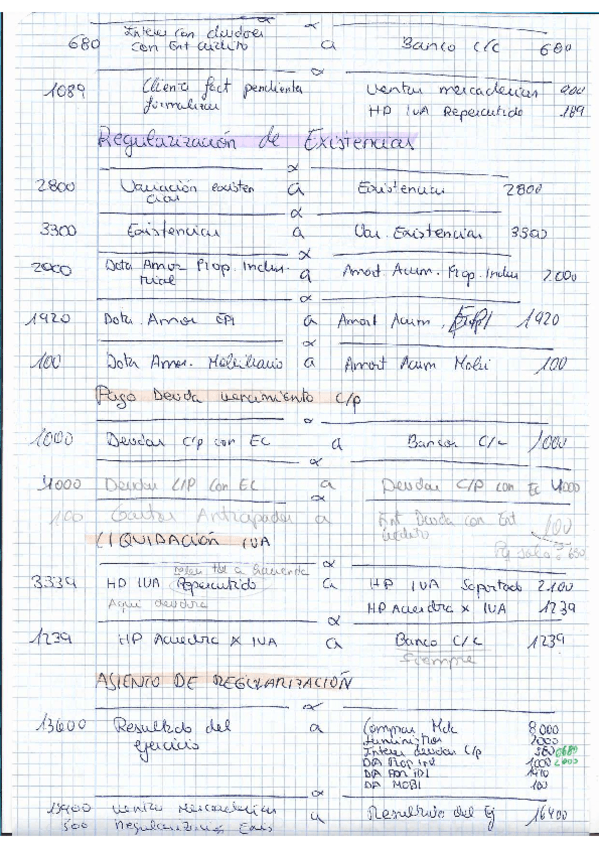 Interes con deudores
680 con Ent credito a Banco c/c 680
1089 Cliente fact pendiente ventas mercaderias 900
formalizar HP IVA Repercutido 189
Regularización de Existencias
2800 Variación existen a Existencias 2800
cias
3300 Existencias a Var. Existencias 3300
2000 Dota Amor Prop. Indus- a Amort Acum. Prop. Indus 2.000
trial
1920 Dota. Amor EPI a Amort Acum. EPI 1920
100 Dota Amor. Mobiliario a Amort Acum Mobi 100
Pago Deuda vencimiento C/p
1000 Deudas C/p con EC a Bancos C/C 1000
4000 Deudas L/P con EC a Deudas C/P con EC 4000
100 Gastos Anticipados a Int Deuda con Ent 100
credito
LIQUIDACIÓN IVA
3339 HP IVA Repercutido a HP IVA Soportado 2.100
Aqui deudora HP Acreedora x IVA 1239
1239 HP Acreedora x IVA a Banco C/C 1239
Siempre
ASIENTO DE REGULARIZACIÓN
13600 Resultado del a Compras Mde 8000
ejercicio Suministros 2000
Interes deudas C/p 580 680
DA Prop ind 1000 2000
DA
DA MOBI 100
ventas Mercaderias a Resultado del Ej 16400
500 Regularizacion Exis